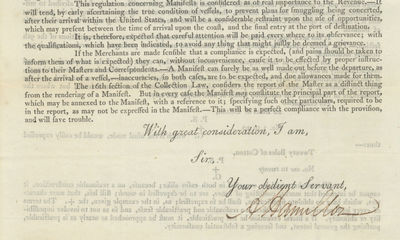 This regulation concerning Manifests is considered as of real importance to the Revenue.—It
will tend, by early ascertaining the true condition of vessels, to prevent plans for smuggling being concerted,
after their arrival within the United States, and will be a considerable restraint upon the use of opportunities,
which may present between the time of arrival upon the coast, and the final entry at the port of destination.
It is, therefore, expected that careful attention will be paid every where to its observance; with
the qualifications, which have been indicated, to avoid any thing that might justly be deemed a grievance.
If the Merchants are made sensible that a compliance is expected, (and pains should be taken to
inform them of what is expected) they can, without inconvenience, cause it to be effected by proper instruc-
tions to their Masters and Correspondents.—A Manifest can surely be as well made out before the departure, as
after the arrival of a vessel,—inaccuracies, in both cases, are to be expected, and due allowances made for them.
The 16th section of the Collection Law, considers the report of the Master as a distinct thing
from the rendering of a Manifest. But in every case the Manifest may constitute the principal part of the report,
which may be annexed to the Manifest, with a reference to it; specifying such other particulars, required to be
in the report, as may not be expressed in the Manifest.—This will be a perfect compliance with the provision,
and will save trouble.
With great consideration, I am,
Sir,
Your obedient Servant,
A Hamilton